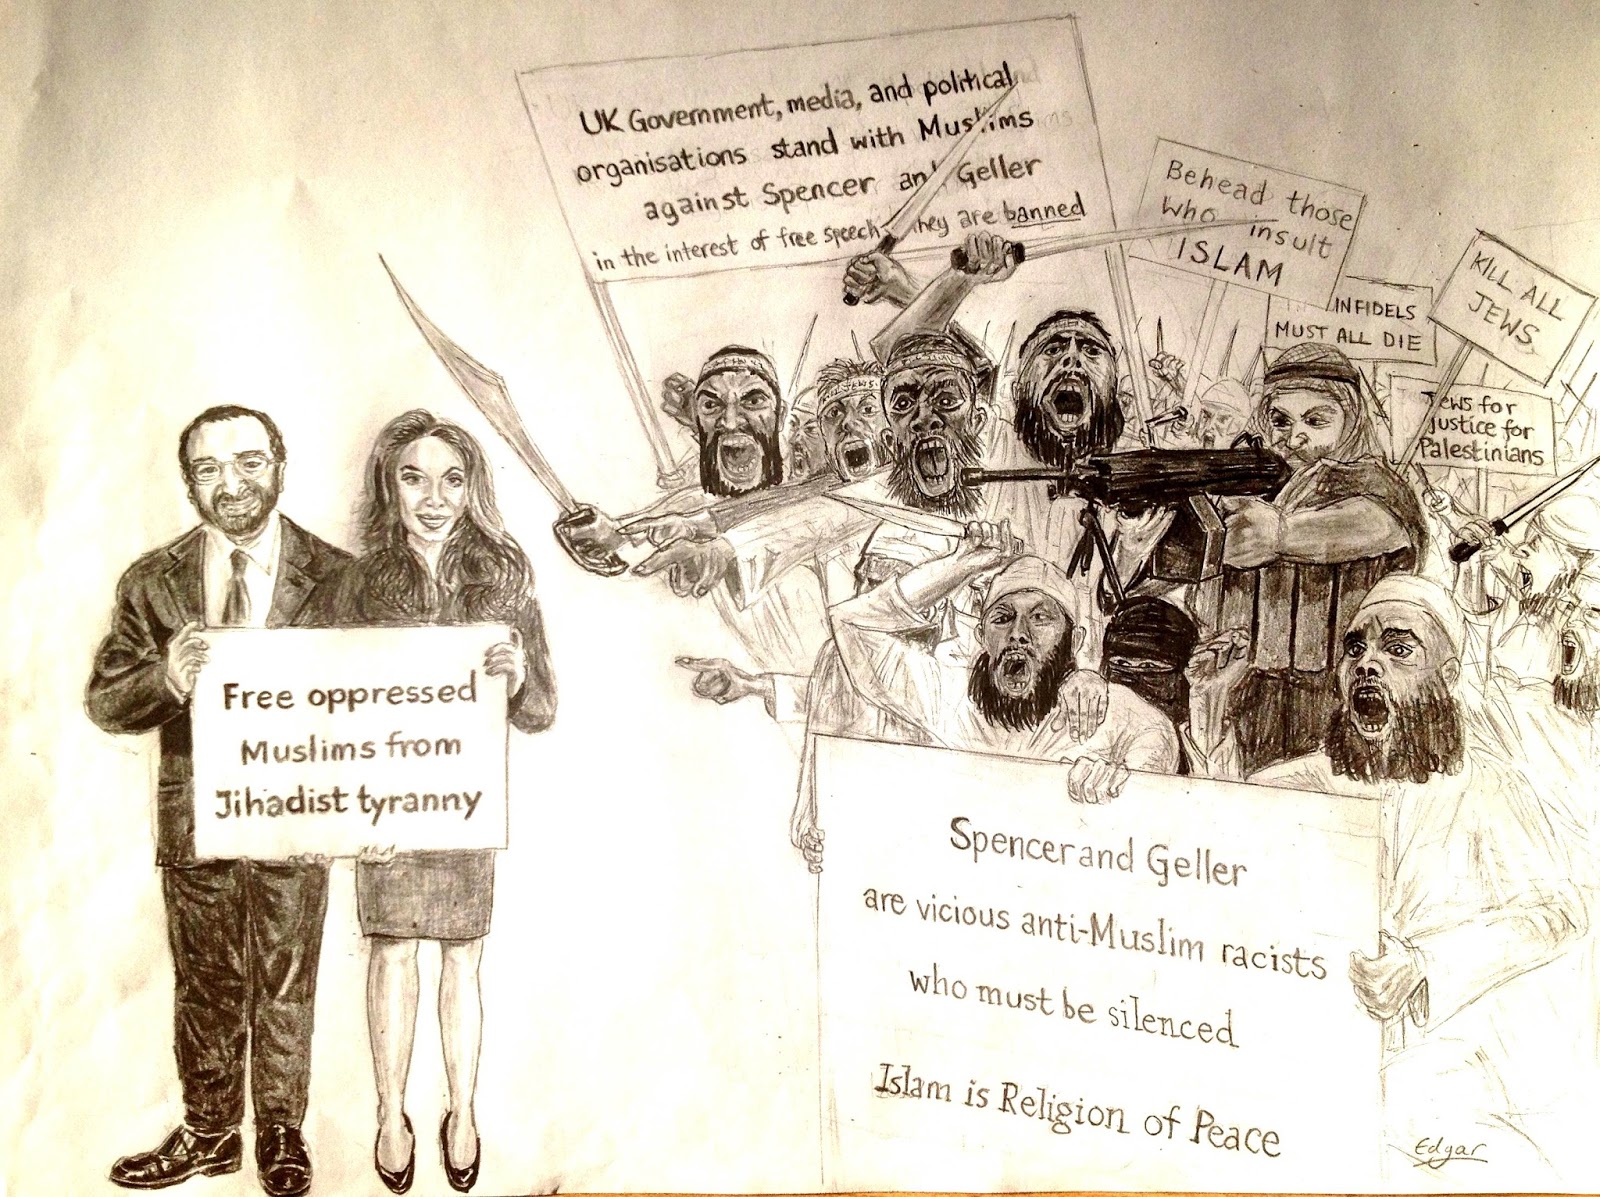 UK Government, media, and political
organisations stand with Muslims
against Spencer and Geller
in the interest of free speech they are banned
Behead those
who insult
ISLAM
INFIDELS
MUST ALL DIE
KILL ALL
JEWS
Jews for
justice for
Palestinians
Free oppressed
Muslims from
Jihadist tyranny
Spencer and Geller
are vicious anti-Muslim racists
who must be silenced
Islam is Religion of Peace
Edgar